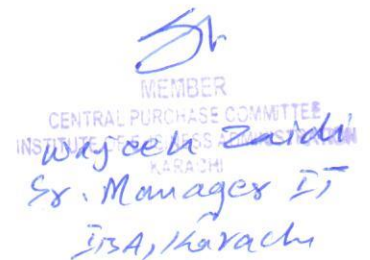 MEMBER
CENTRAL PURCHASE COMMITTEE
INSTITUTE OF BUSINESS ADMINISTRATION
Wajeeh Zaidi
KARACHI
Sr. Manager IT
IBA, Karachi